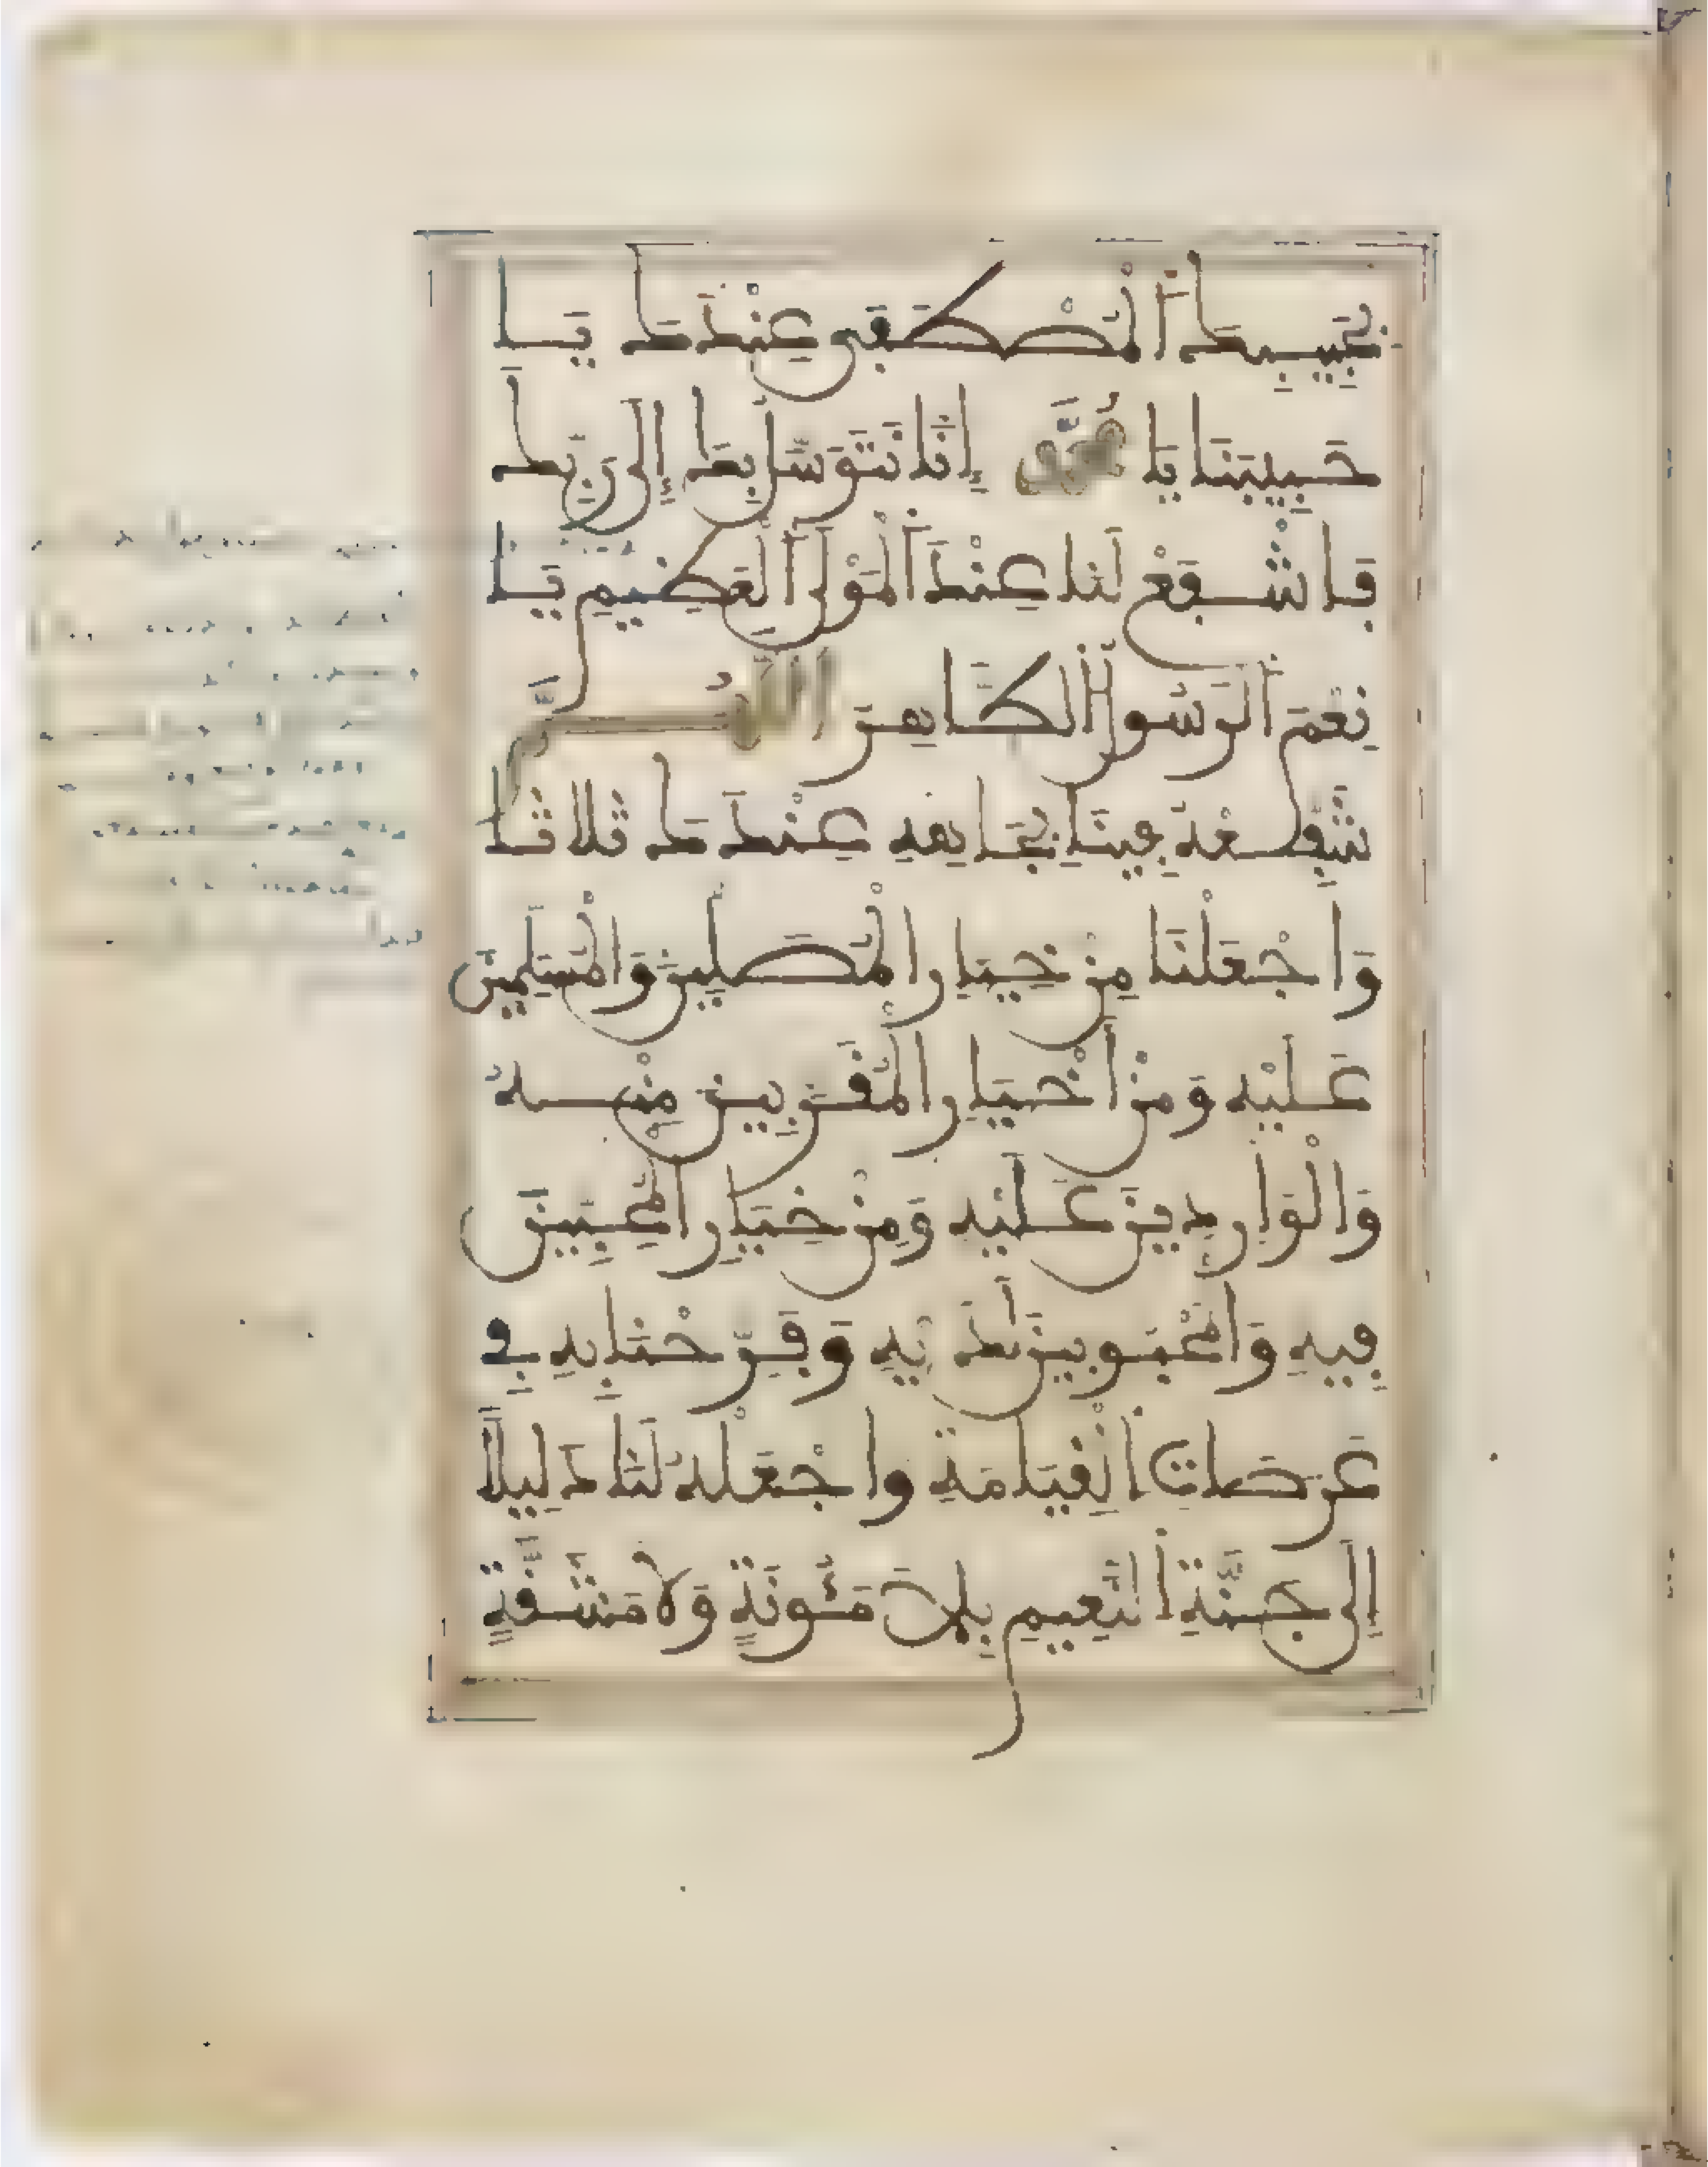 بِحَبِيبِكَ ٱلْمُصْطَفَى عِنْدَكَ يَا
حَبِيبَنَا يَا مُحَمَّدُ إِنَّا نَتَوَسَّلُ بِكَ إِلَى رَبِّكَ
فَاشْفَعْ لَنَا عِنْدَ ٱلْمَوْلَى ٱلْعَظِيمِ يَا
نِعْمَ ٱلرَّسُولُ ٱلطَّاهِرُ اللَّهُمَّ
شَفِّعْهُ فِينَا بِجَاهِهِ عِنْدَكَ ثَلَاثًا
وَاجْعَلْنَا مِنْ خِيَارِ الْمُصَلِّينَ وَالْمُسَلِّمِينَ
عَلَيْهِ وَمِنْ أَخْيَارِ الْمُقَرَّبِينَ مِنْهُ
وَالْوَارِدِينَ عَلَيْهِ وَمِنْ خِيَارِ الْمُحِبِّينَ
فِيهِ وَالْمَحْبُوبِينَ لَدَيْهِ وَفَرِّحْنَا بِهِ فِي
عَرَصَاتِ الْقِيَامَةِ وَاجْعَلْهُ لَنَا دَلِيلًا
إِلَى جَنَّةِ النَّعِيمِ بِلَا مَئُونَةٍ وَلَا مَشَقَّةٍ